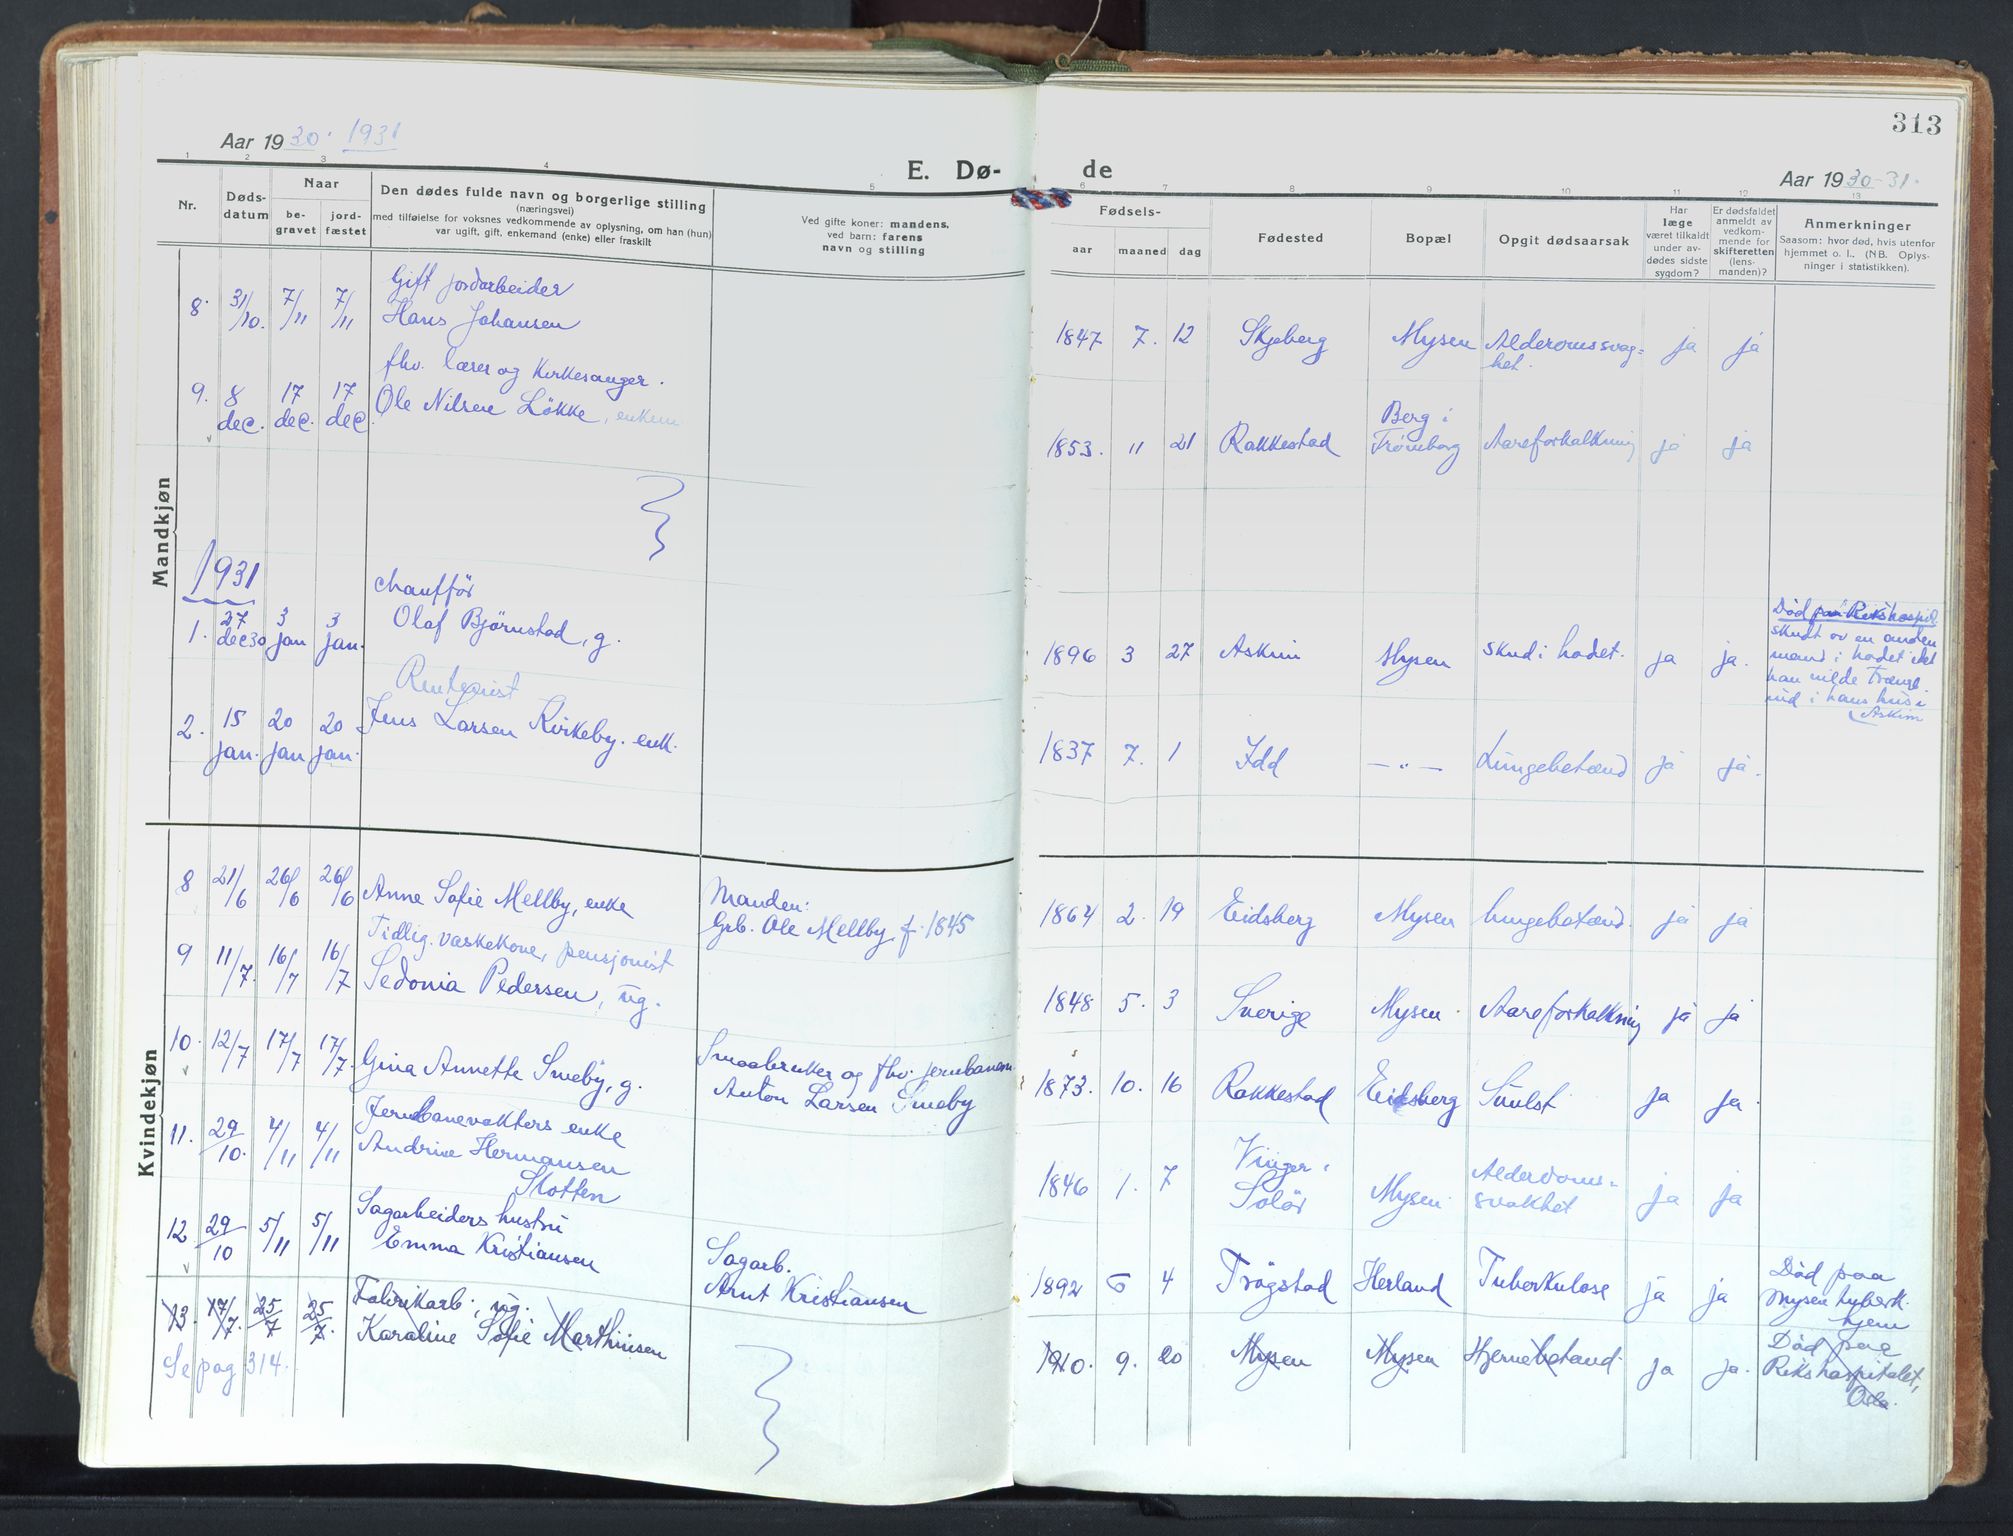 313
Aar 1930. 1931
E. Dø-
de
Aar 1930-31.
1 2 3 4 5 6 7 8 9 10 11 12 13
Nr.
Døds-
datum
Naar
be-
gravet
jord-
fæstet
Den dødes fulde navn og borgerlige stilling
(næringsvei)
med tilføielse for voksnes vedkommende av oplysning, om han (hun)
var ugift, gift, enkemand (enke) eller fraskilt
Ved gifte koner: mandens,
ved barn: farens
navn og stilling
Fødsels-
aar maaned dag
Fødested
Bopæl
Opgit dødsaarsak
Har
læge
været tilkaldt
under av-
dødes sidste
sygdom?
Er dødsfaldet
anmeldt av
vedkom-
mende for
skifteretten
(lens-
manden)?
Anmerkninger
Saasom: hvor død, hvis utenfor
hjemmet o. l.. (NB. Oplys-
ninger i statistikken).
Mandkjøn
Gift jordarbeider
8. 31/10. 7/11 7/11 Hans Johansen
1847 7. 12 Skjeberg Mysen Alderomssvag=
het. ja ja
fhv. lærer og kirkesanger.
9. 8 dec. 17 dec. 17 dec. Ole Nilsen Løkke, enkem
1853. 11 21 Rakkestad Berg i
Trømborg Aareforkalkning ja ja
1931
chauffør
1. 27 dec 30 3 jan 3 jan. Olaf Bjørnstad, g.
1896 3 27 Askim Mysen skud i hodet. ja ja.
Død paa Rikshospit.
skudt av en anden
mand i hodet idet
han vilde trænge
ind i hans hus i
Askim
Rentenist
2. 15 jan. 20 jan 20 jan. Jens Larsen Kirkeby. enk.
1837 7. 1 Idd —"— Lungebetænd ja ja.
Kvindekjøn
8 21/6 26/6 26/6 Anne Sofie Mellby, enke
Manden:
Grb. Ole Mellby f. 1845
1864 2. 19 Eidsberg Mysen lungebetænd. ja ja
Tidlig. vaskekone, pensjonist
9 11/7. 16/7 16/7 Sedonia Pedersen, ug.
1848 5. 3 Sverige Mysen. Aareforkalkning ja ja
10. 12/7 17/7 17/7. Gina Annette Smeby, g.
Smaabruker og fhv. jernbanem.
Anton Larsen Smeby
1873. 10. 16 Rakkestad Eidsberg Svulst ja ja.
Jernbanevakters enke
11. 29/10. 4/11 4/11 Andrine Hermansen
Slotten
1846 1. 7 Vinger i
Solør Mysen. Alderdoms=
svakhet ja ja
Sagarbeiders hustru
12 29/10 5/11 5/11 Emma Kristiansen
Sagarb.
Arnt Kristiansen
1892 6 4 Trøgstad Herland Tuberkulose ja ja
Død paa
Mysen tuberk.
hjem
Fabrikarb., ug.
13. 17/7. 25/7 25/7. Karoline Sofie Marthinsen
1910. 9. 20 Mysen Mysen Hjernebetænd. ja ja.
Død paa
Rikshospitalet,
Oslo.
Se pag 314.